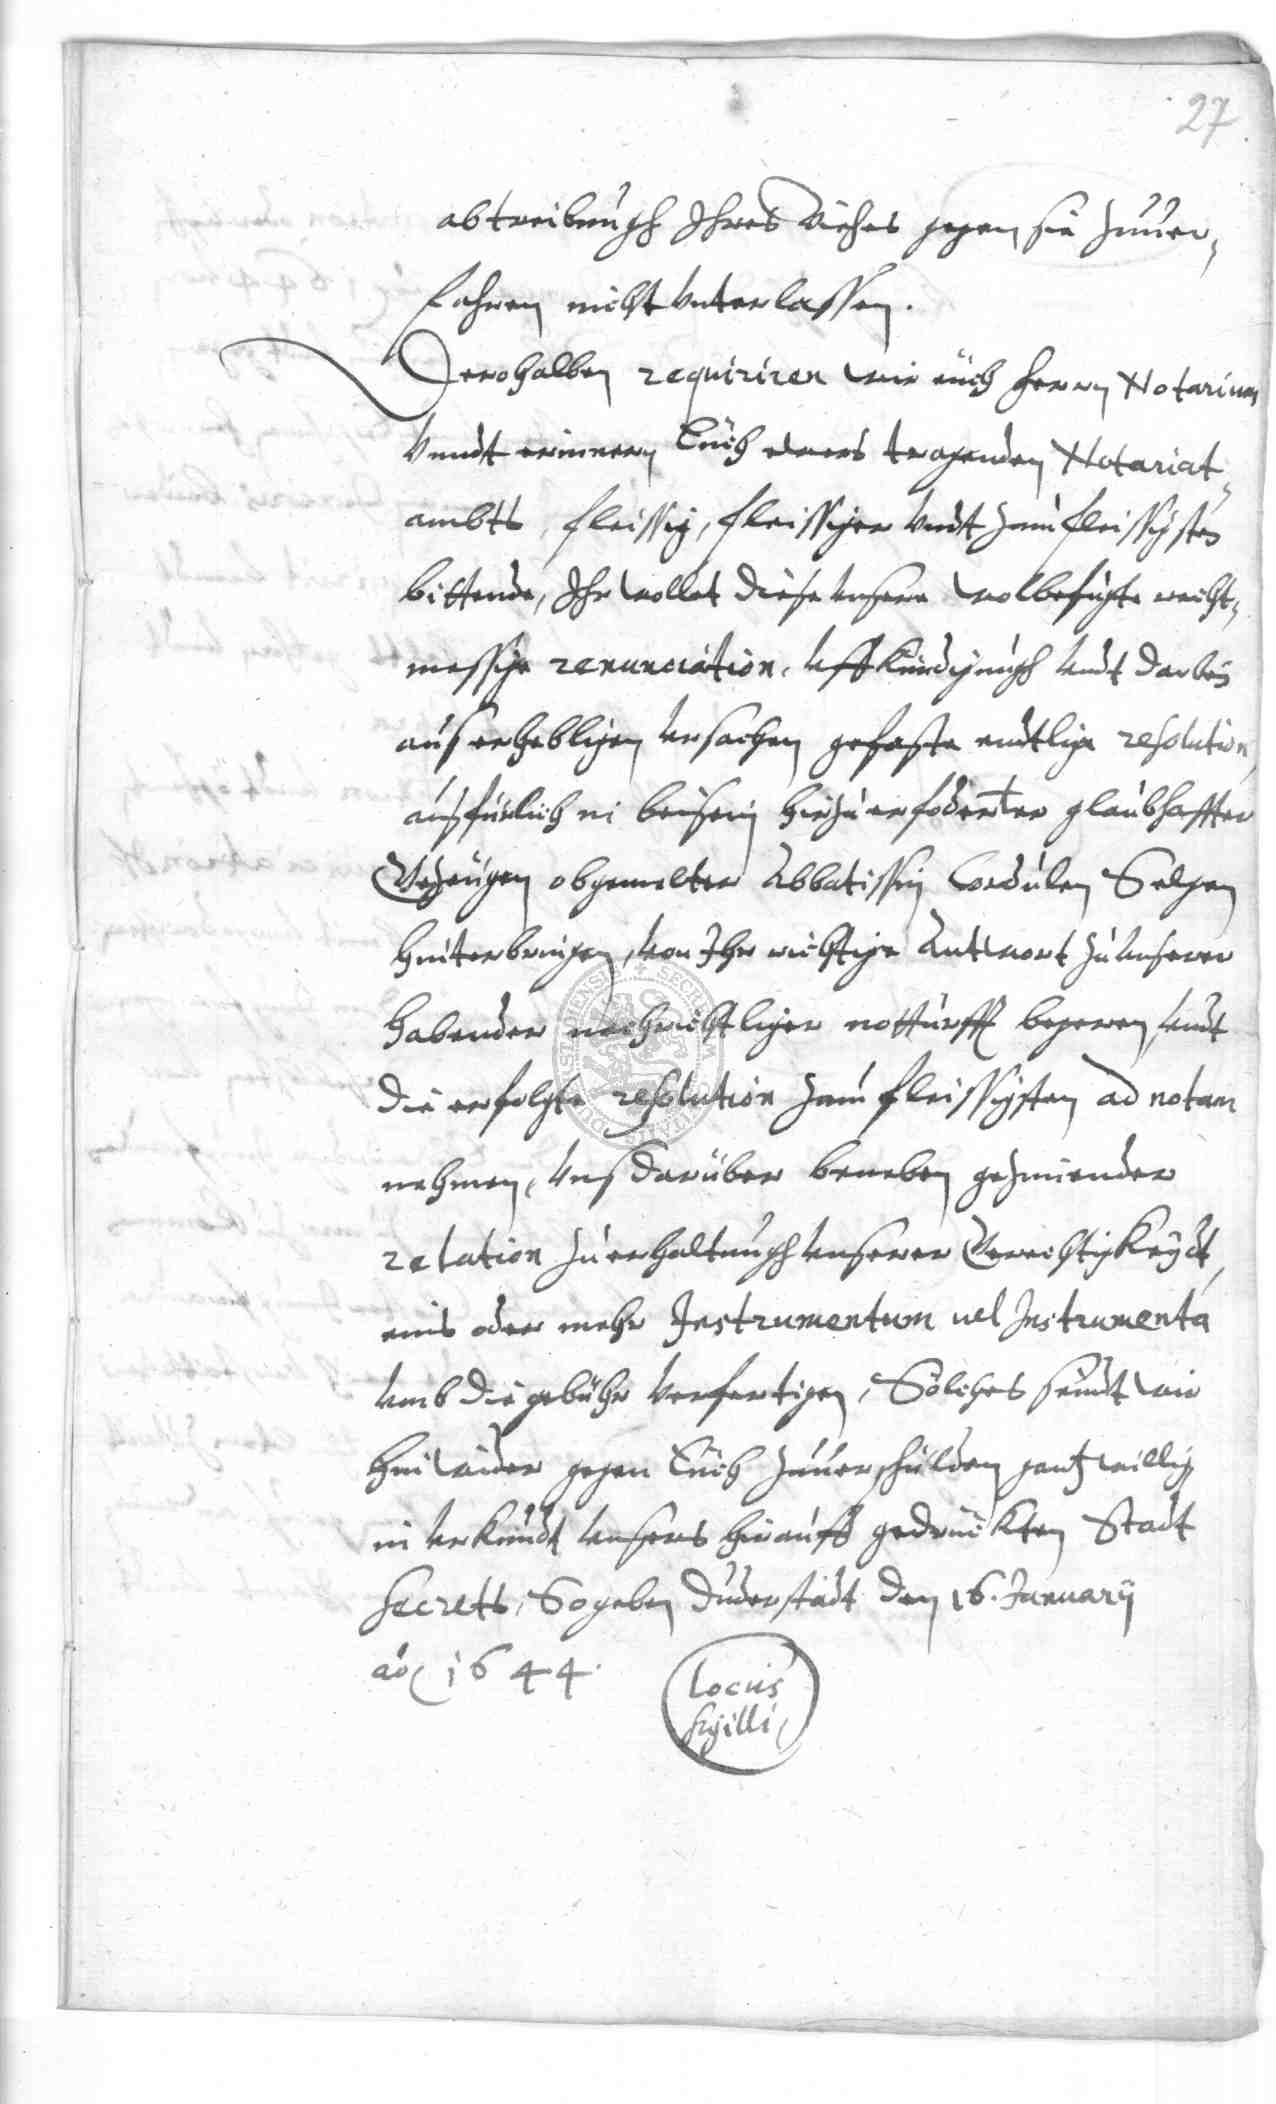 27
abtreibungh Ihres Viehes gegen sie zuuer-
fahren nicht Vnterlassen.
Derohalben requiriren wir eüch herrn Notarium
Vnndt erinnern Eüch ewers tragenden Notariat-
ambts, fleissig, fleissiger Vndt zum fleissigsten
bittende, Ihr wollet diese Vnsere wolbefügte recht-
messige renunciation, Vffkündigungh Vndt darbeÿ
aus erhebligen Vrsachen gefaste endtlige resolution,
ausfürlich in beisein hirzu erforderter glaubhaffter
Gezeügen obgemelter Abbatissin Cordulen
hinterbringen, von Ihr richtige Antwort zu Vnserer
habender nachrichtliger notturfft begeren, Vndt
die erfolgte resolution zum fleissigsten ad notam
nehmen, Vns darüber beneben geziemender
relation zu erhaltungh Vnserer Gerechtigkeÿdt,
eins oder mehr Instrumentum vel Instrumenta
vmb die gebühr Verfertigen, Solches seindt wir
hinwider gegen Eüch zuuerschulden gantz willig,
in Vrkundt Vnsers hirauff gedrückten Stadt
Secrets, So geben Duderstadt den 16. Januarij
ao 1644.
Locus
sigilli
SECRETUM